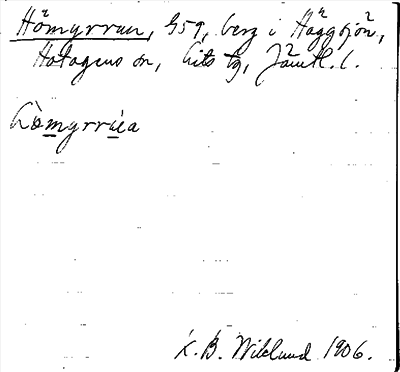 Hömyrran, 459, berg i Häggsjön,
Hotagens sn, Lits tg, Jämtl. l.
K. B. Wiklund 1906.